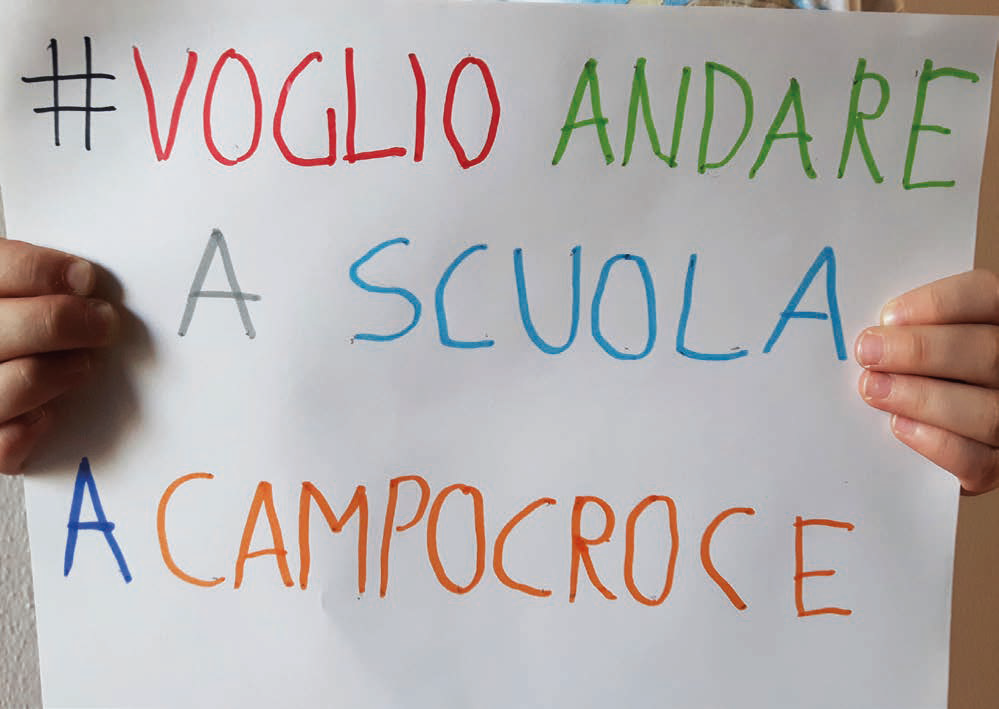 #VOGLIO ANDARE
A SCUOLA
A CAMPOCROCE